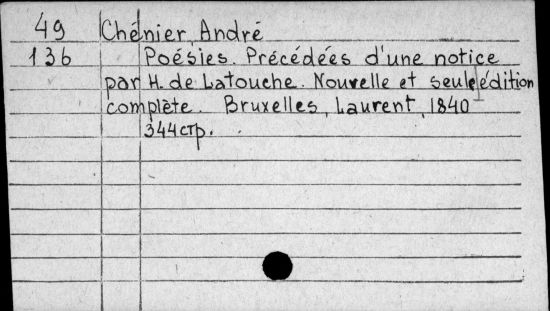 49 Chénier, André
136 Poésies. Précédées d'une notice
par H. de Latouche. Nouvelle et seule édition
complète. Bruxelles, Laurent, 1840
344 стр.